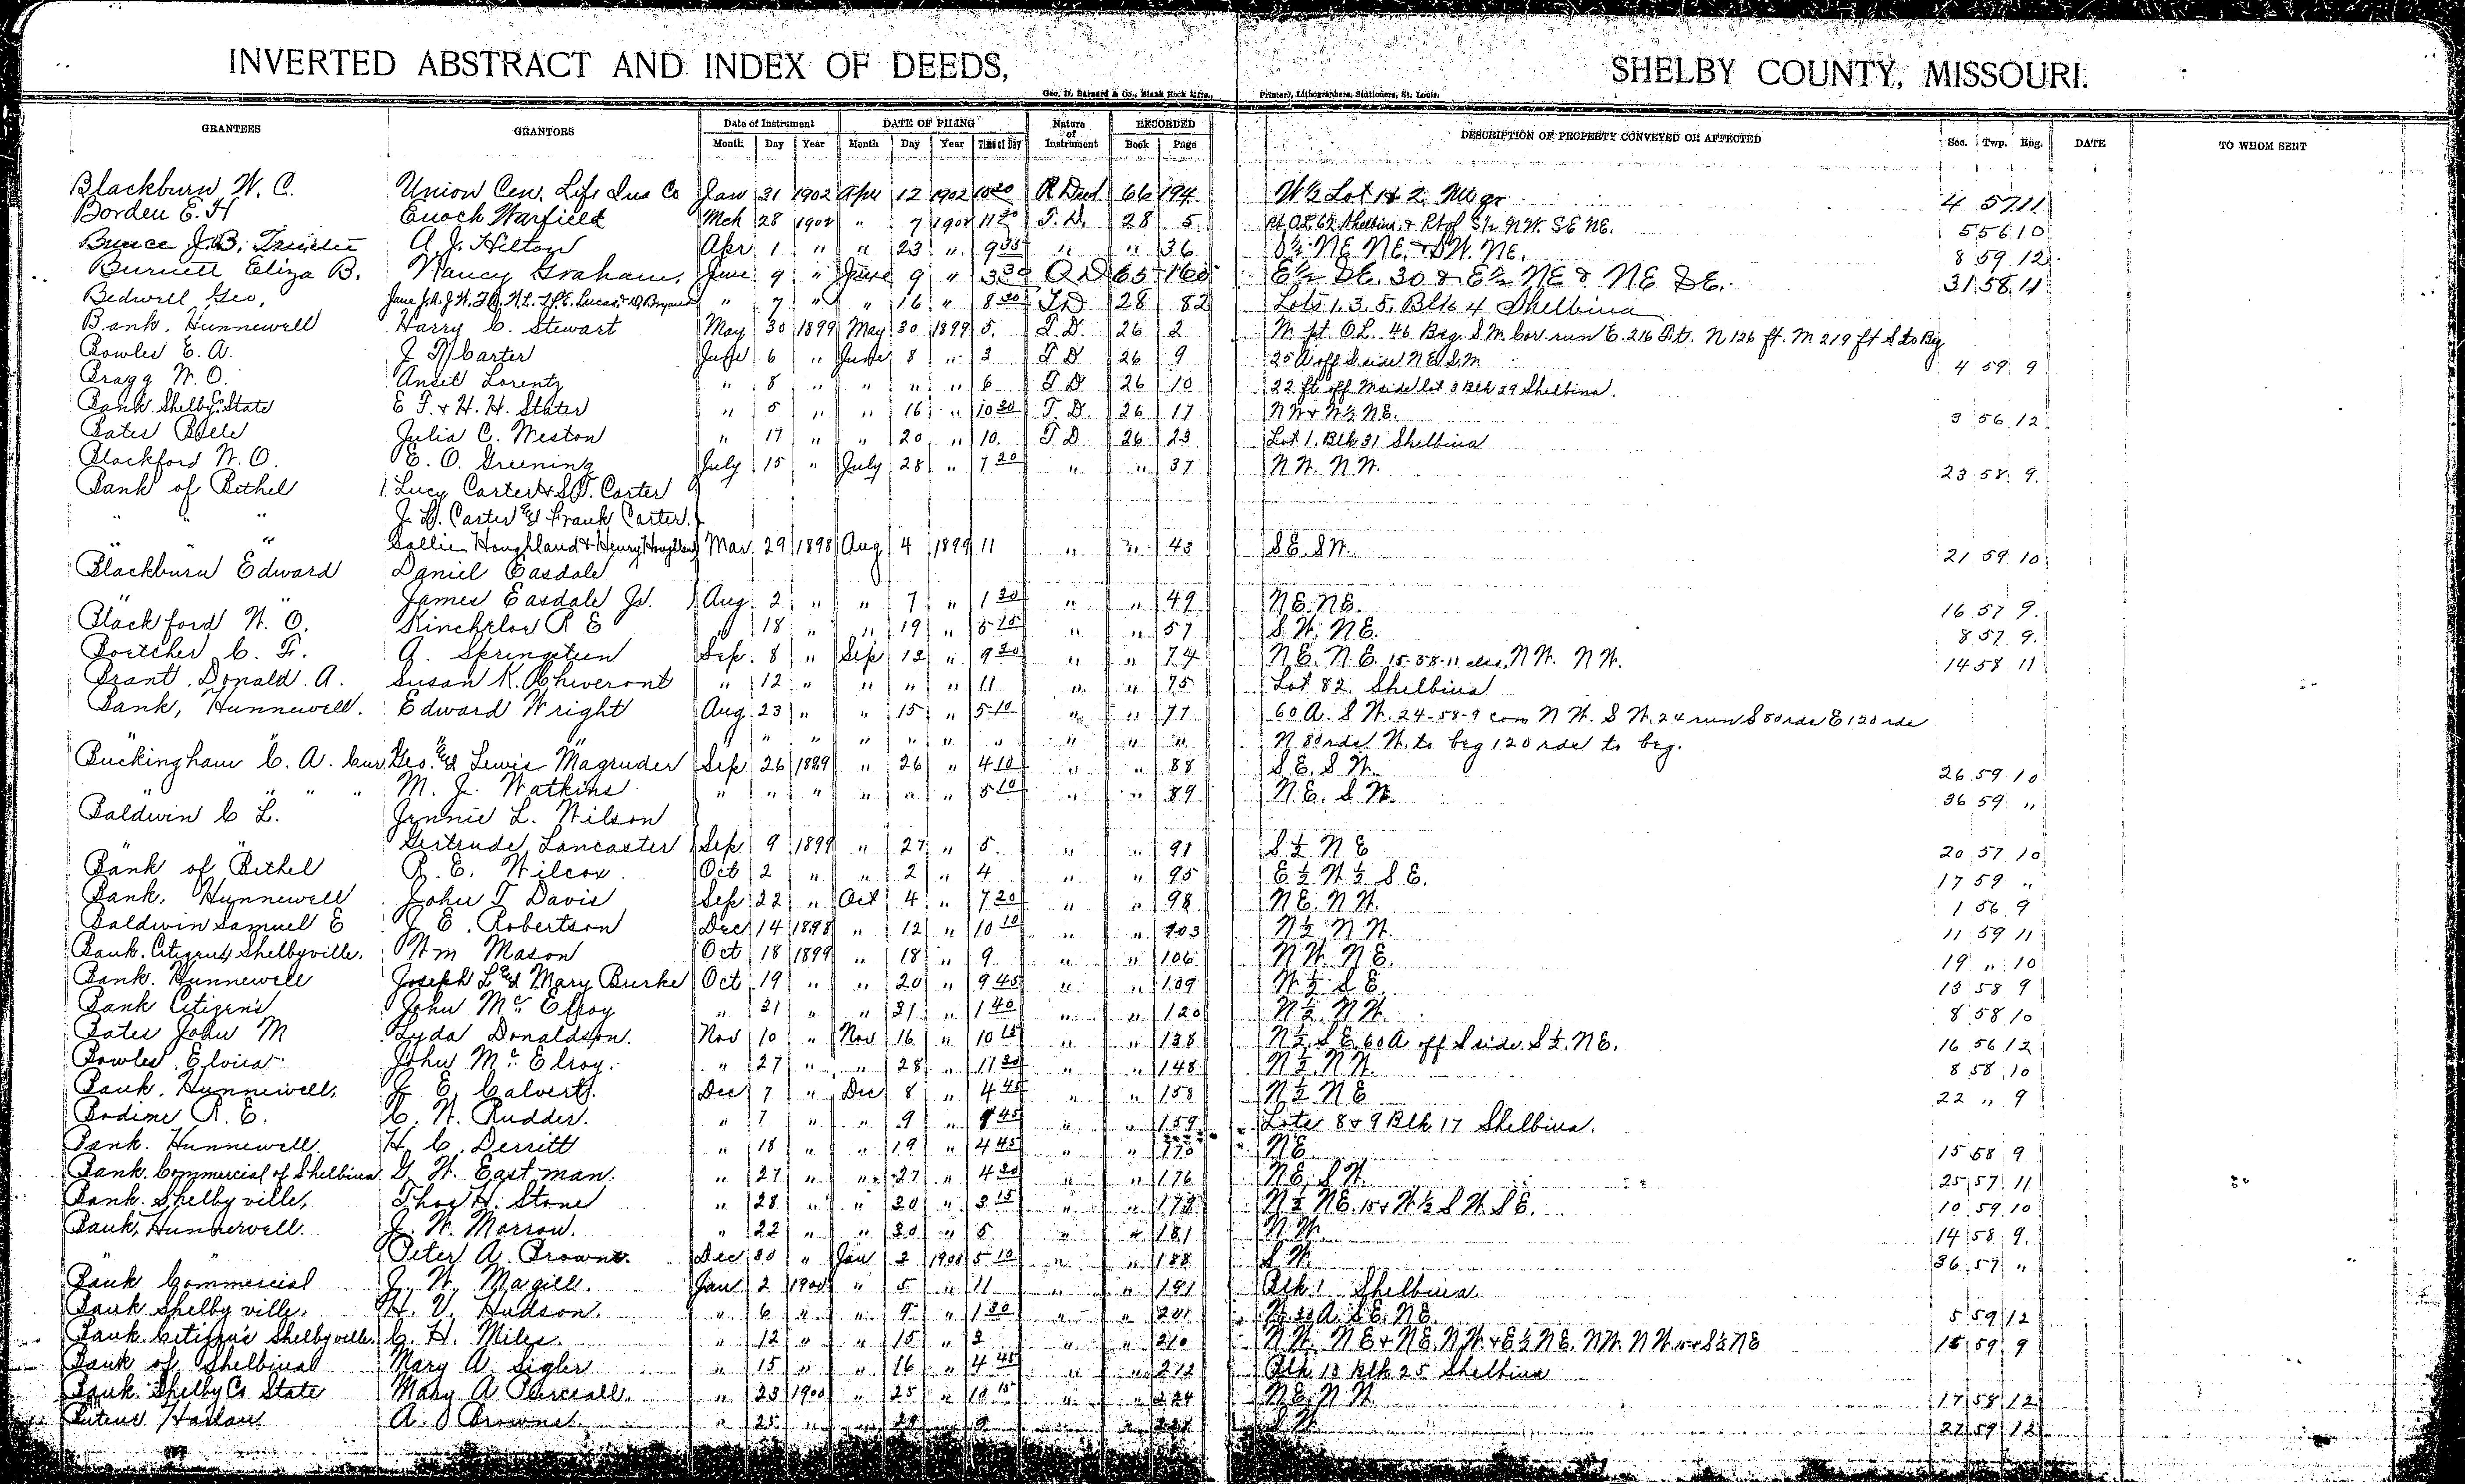 INVERTED ABSTRACT AND INDEX OF DEEDS, SHELBY COUNTY, MISSOURI.
Geo. D. Barnard & Co., Blank Book Mfrs., Printers, Lithographers, Stationers, St. Louis.
GRANTEES GRANTORS Date of Instrument DATE OF FILING Nature of Instrument RECORDED DESCRIPTION OF PROPERTY CONVEYED OR AFFECTED Sec. Twp. Rng. DATE TO WHOM SENT
Month Day Year Month Day Year Time of Day Book Page
Blackburn W. C. Union Cen. Life Ins Co Jan 31 1902 Apr 12 1902 10 30 R Deed 66 194 W ½ Lot 1 & 2 4 57 11
Borden E. H Enoch Warfield Mch 28 1902 " 7 1902 11 30 T. D. 28 5 Pt O.L. 62 Shelbina & Pt of S½ N.W. S.E. NE. 5 56 10
Bunce J. B. Trustee A. J. Hilton Apr 1 " " 23 " 9 35 " " 36 S½ NE NE. & S.W. NE. 8 59 12
Burnett Eliza B. Nancy Graham. June 9 " June 9 " 3 30 Q D 65 160 E ½ SE. 30 & E ½ NE & NE SE. 31 58 11
Bedwell Geo, " 7 " " 16 " 8 30 T D 28 82 Lots 1. 3. 5. Blk 4 Shelbina
Bank. Hunnewell Harry C. Stewart May 30 1899 May 30 1899 5. T. D. 26 2 W pt. O.L. 46 Beg. S.W. Cor. run E. 216 ft. N 126 ft. W 219 ft S to Beg
Bowles E. A. J. W Carter June 6 " June 8 " 3 T D 26 9 25 A off S side NE S.W. 4 59 9
Bragg W. O. Ansel Lorentz " 8 " " " " 6 T D 26 10 22 ft off W side lot 3 Blk 29 Shelbina.
Bank. Shelby Co. State E. F. & H. H. Stater " 5 " " 16 " 10 30 T. D. 26 17 N W & W ½ NE. 3 56 12
Bates Belle Julia C. Weston " 17 " " 20 " 10. T D 26 23 Lot 1. Blk 31 Shelbina
Blackford W. O. E. O. Greening July 15 " July 28 " 7 20 " " 37 N W. N W. 23 58 9.
Bank of Bethel Lucy Carter & S. T. Carter
" " " J. D. Carter & Frank Carter.
" Sallie Houghland & Henry Houghland Mar 29 1898 Aug 4 1899 11 " " 43 S E. S W. 21 59 10
Blackburn Edward Daniel Easdale
" " James Easdale Jr. Aug 2 " " 7 " 1 30 " " 49 N E. N E. 16 57 9.
Blackford W. O. Kincheloe R E " 18 " " 19 " 5 15 " " 57 S W. N E. 8 57 9.
Boetcher C. F. A. Springsteen Sep 8 " Sep 13 " 9 30 " " 74 N E. N E. 15-58-11 also, N W. N W. 14 58 11
Brant. Donald. A. Susan K. Chiveront " 12 " " " " 11 " " 75 Lot 82. Shelbina
Bank, Hunnewell. Edward Wright Aug 23 " " 15 " 5 10 " " 77 60 A. S W. 24-58-9 com N W. S W. 24 run S 80 rds E 120 rds
" " " " " " " " " " " N 80 rds. W. to beg 120 rds to beg.
Buckingham C. A. Cur. Geo. & Lewis Magruder Sep 26 1899 " 26 " 4 10 " " 88 S E. S W. 26 59 10
" " " " M. J. Watkins " " " " " " 5 10 " " 89 N E. S W. 36 59 "
Baldwin C L. Jennie L. Wilson
" " Gertrude Lancaster Sep 9 1899 " 27 " 5. " " 91 S ½ N E 20 57 10
Bank of Bethel R. E. Wilcox. Oct 2 " " 2 " 4 " " 95 E ½ W ½ S E. 17 59 "
Bank. Hunnewell John T Davis Sep 22 " Oct 4 " 7 20 " " 98 N E. N W. 1 56 9
Baldwin Samuel E J E. Robertson Dec 14 1898 " 12 " 10 10 " " 103 N ½ N W. 11 59 11
Bank. Citizens Shelbyville. Wm Mason Oct 18 1899 " 18 " 9 " " 106 N W. N E. 19 " 10
Bank. Hunnewell Joseph L & Mary Burke Oct 19 " " 20 " 9 45 " " 109 W ½ S E. 13 58 9
Bank Citizens John McElroy " 31 " " 31 " 1 40 " " 120 N ½. N W. 8 58 10
Bates John M Lyda Donaldson. Nov 10 " Nov 16 " 10 15 " " 138 N ½. S E. 60 A off S side. S ½. N E. 16 56 12
Bowles. Elvira John McElroy. " 27 " " 28 " 11 30 " " 148 N ½. N W. 8 58 10
Bank. Hunnewell, J E. Calvert. Dec 7 " Dec 8 " 4 45 " " 158 N ½ N E 22 " 9
Bodine R. E. C. W. Rudder. " 7 " " 9 " 45 " " 159 Lots 8 & 9 Blk 17 Shelbina.
Bank. Hunnewell. H. C. Derritt " 18 " " 19 " 4 45 " " 170 N E. 15 58 9
Bank. Commercial of Shelbina G. W. Eastman. " 27 " " 27 " 4 20 " " 176 N E, S W. 25 57 11
Bank. Shelbyville, Thos H. Stone " 28 " " 30 " 3 15 " " N ½ N E. 15 & W ½ S W. S E. 10 59 10
Bank, Hunnewell. J. W. Morrow. " 22 " " 30 " 5 " " 181 N W. 14 58 9.
" " Peter A. Browne. Dec 30 " Jan 2 1900 5 10 " " 188 S W. 36 57 "
Bank Commercial J. W. Magill. Jan 2 1900 " 5 " 11 " " 191 Blk 1 Shelbina.
Bank Shelbyville. H. V. Hudson. " 6 " " 9 " 1 30 " " 201 S E. N E. 5 59 12
Bank Citizens Shelbyville. C. H. Miles. " 12 " " 15 " 2 " " 210 N W. N E & N E. N W. & E ½ N E. N W. N W. 15 & S ½ N E 15 59 9
Bank of Shelbina Mary A. Sigler " 15 " " 16 " 4 45 " " 212 Blk 13 Blk 25 Shelbina
Bank. Shelby Co State Mary A " 23 1900 " 25 " 10 15 " " 224 N E. N W. 17 58 12
Harlan A. Browne. " 25 " " " " S W. 27 59 12